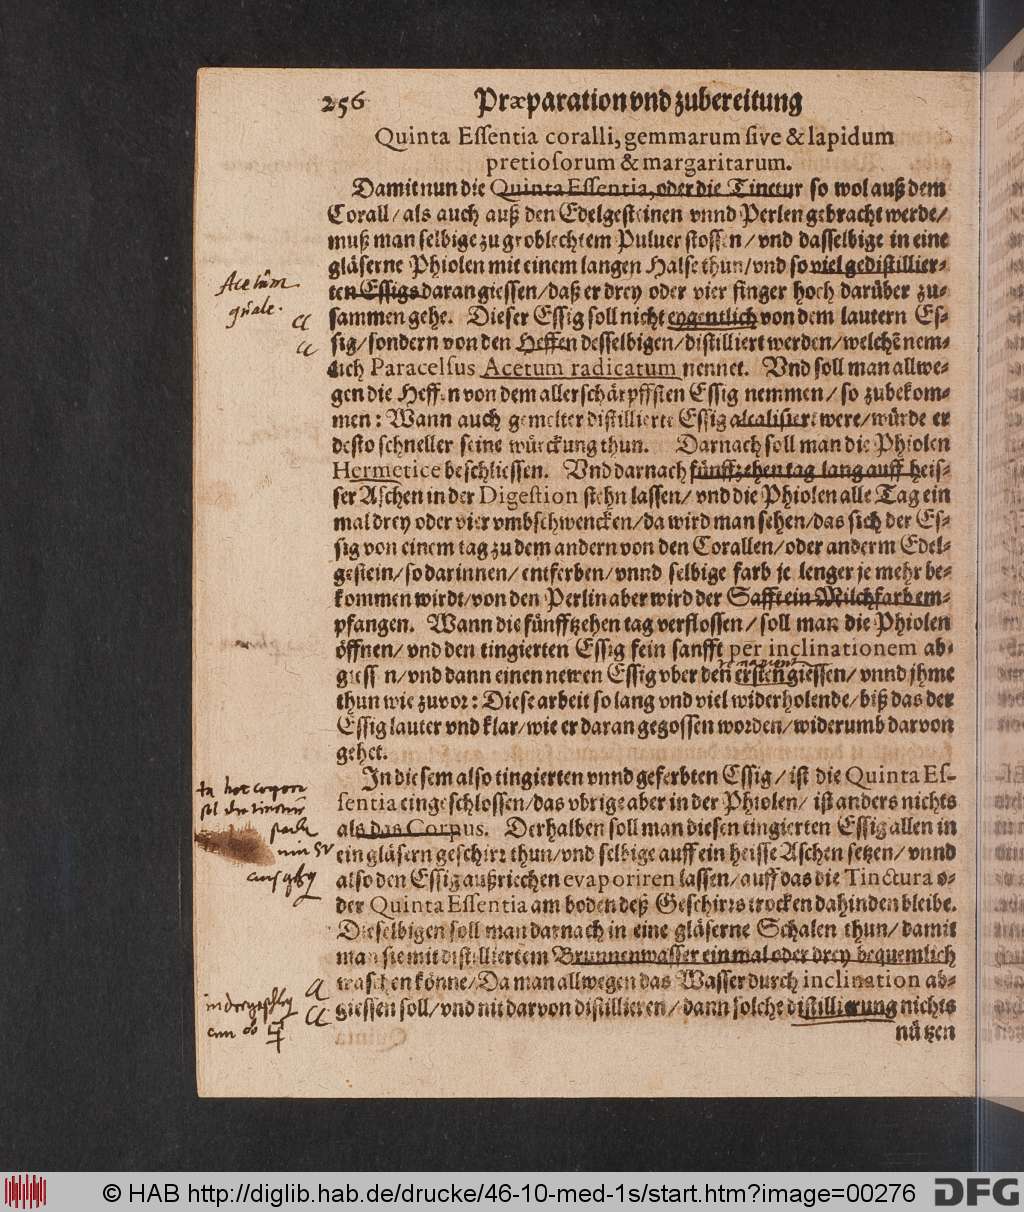 256 Præparation vnd zubereitung
Quinta Eſſentia coralli, gemmarum ſive & lapidum
pretioſorum & margaritarum.
Damit nun die Quinta Eſſentia, oder die Tinctur ſo wol auß dem
Corall/ als auch auß den Edelgeſteinen vnnd Perlen gebracht werde/
muß man ſelbige zu groblechtem Puluer ſtoſſen/ vnd daſſelbige in eine
gläſerne Phiolen mit einem langen Halſe thun/ vnd ſo viel gediſtillier-
ten Eſſigs daran gieſſen/ daß er drey oder vier finger hoch darüber zu-
ſammen gehe. Dieſer Eſſig ſoll nicht eygentlich von dem lautern Eſ-
ſig/ ſondern von den Heffen deſſelbigen/ diſtilliert werden/ welchẽ nem-
lich Paracelſus Acetum radicatum nennet. Vnd ſoll man allwe-
gen die Heffen von dem allerſchärpffſten Eſſig nemmen/ ſo zubekom-
men: Wann auch gemelter diſtillierte Eſſig alcaliſiert were/ würde er
deſto ſchneller ſeine würckung thun. Darnach ſoll man die Phiolen
Hermetice beſchlieſſen. Vnd darnach fünffzehen tag lang auff heiſ-
ſer Aſchen in der Digeſtion ſtehn laſſen/ vnd die Phiolen alle Tag ein
mal drey oder vier vmbſchwencken/ da wird man ſehen/ das ſich der Eſ-
ſig von einem tag zu dem andern von den Corallen/ oder anderm Edel-
geſtein/ ſo darinnen/ entferben/ vnnd ſelbige farb je lenger je mehr be-
kommen wirdt/ von den Perlin aber wird der Safft ein Milchfarb em-
pfangen. Wann die fünfftzehen tag verfloſſen/ ſoll man die Phiolen
öffnen/ vnd den tingierten Eſſig fein ſanfft per inclinationem ab-
gieſſen/ vnd dann einen newen Eſſig vber den erſten gieſſen/ vnnd jhme
thun wie zuvor: Dieſe arbeit ſo lang vnd viel widerholende/ biß das der
Eſſig lauter vnd klar/ wie er daran gegoſſen worden/ widerumb darvon
gehet.
In dieſem alſo tingierten vnnd geferbten Eſſig/ iſt die Quinta Eſ-
ſentia eingeſchloſſen/ das vbrige aber in der Phiolen/ iſt anders nichts
als das Corpus. Derhalben ſoll man dieſen tingierten Eſſig allen in
ein gläſern geſchirr thun/ vnd ſelbige auff ein heiſſe Aſchen ſetzen/ vnnd
alſo den Eſſig außriechen evaporiren laſſen/ auff das die Tinctura o-
der Quinta Eſſentia am boden deß Geſchirrs trocken dahinden bleibe.
Dieſelbigen ſoll man darnach in eine gläſerne Schalen thun/ damit
man ſie mit diſtilliertem Brunnenwaſſer einmal oder drey bequemlich
waſchen könne/ Da man allwegen das Waſſer durch inclination ab-
gieſſen ſoll/ vnd nit darvon diſtillieren/ dann ſolche diſtillierung nichts
nützen
Acetum
quale.
© HAB http://diglib.hab.de/drucke/46-10-med-1s/start.htm?image=00276 DFG